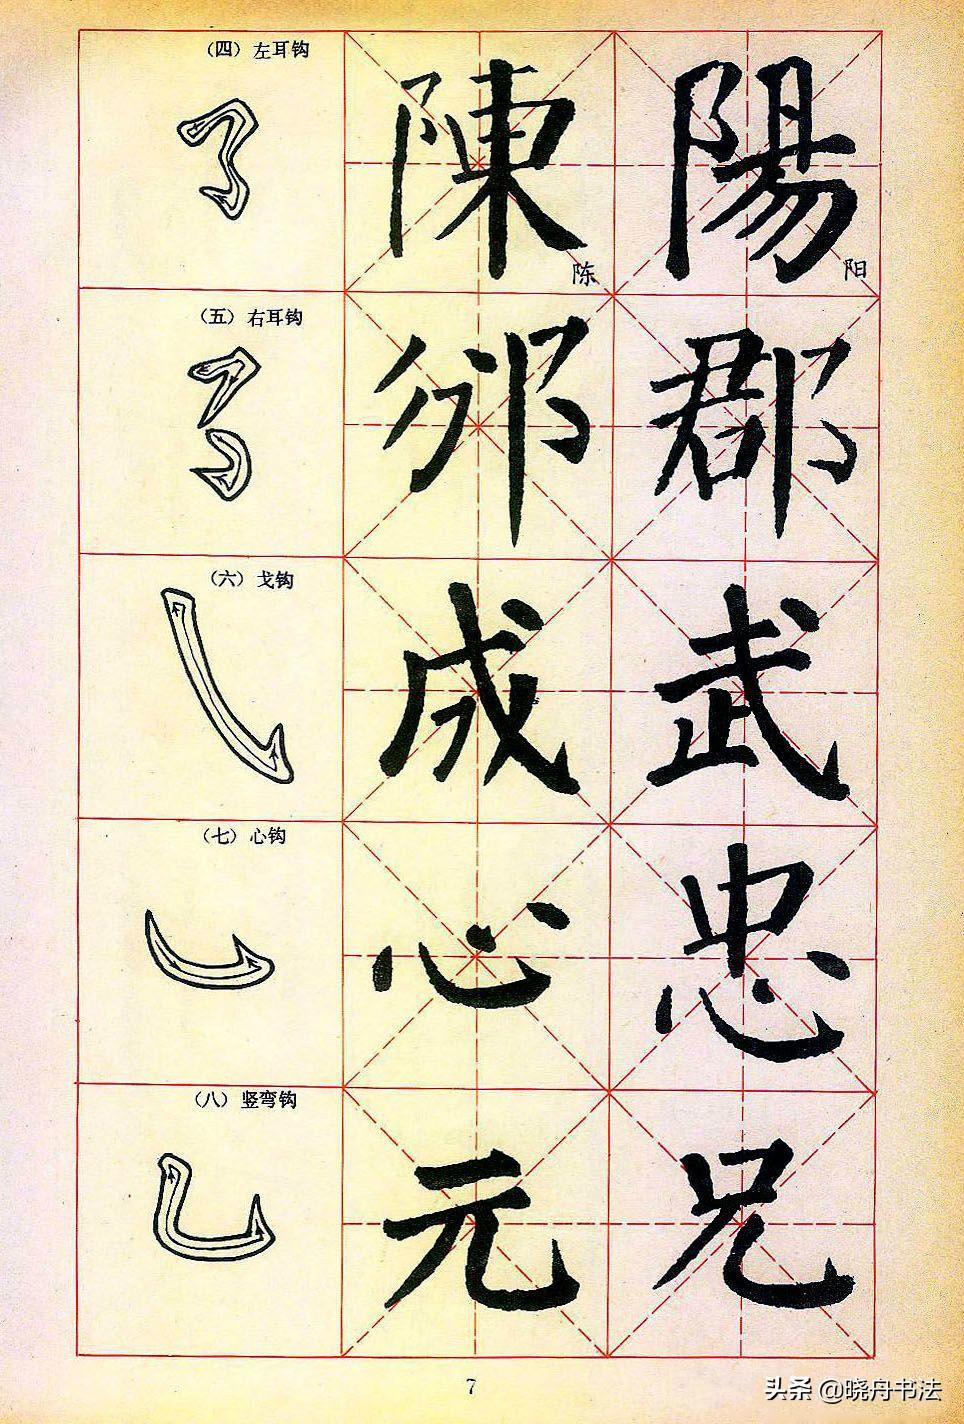 (四) 左耳钩
陳 陽
陈 阳
(五) 右耳钩
邠 郡
(六) 戈钩
成 武
(七) 心钩
心 忠
(八) 竖弯钩
元 兄
7
头条 @晓舟书法